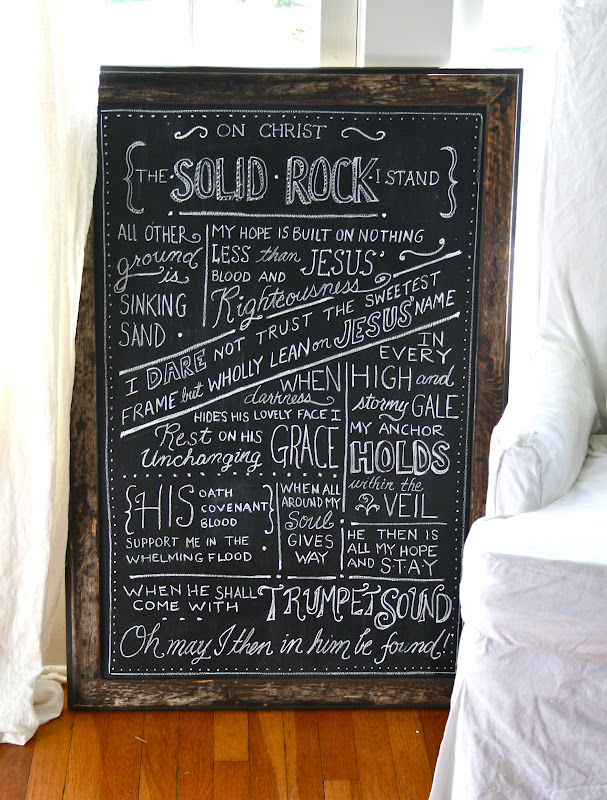 ON CHRIST
THE SOLID · ROCK · I STAND
ALL OTHER
ground
is
SINKING
SAND.
MY HOPE IS BUILT ON NOTHING
LESS than JESUS'
BLOOD AND
Righteousness
I DARE NOT TRUST THE SWEETEST
FRAME but WHOLLY LEAN on JESUS' NAME
WHEN
darkness
HIDES HIS LOVELY FACE I
Rest ON HIS
Unchanging GRACE
IN
EVERY
HIGH and
stormy GALE
MY ANCHOR
HOLDS
within the
VEIL
{HIS OATH
COVENANT
BLOOD}
SUPPORT ME IN THE
WHELMING FLOOD.
WHEN ALL
AROUND MY
Soul
GIVES
WAY
HE THEN IS
ALL MY HOPE
AND STAY
WHEN HE SHALL
COME WITH TRUMPET SOUND
Oh may I then in him be found!